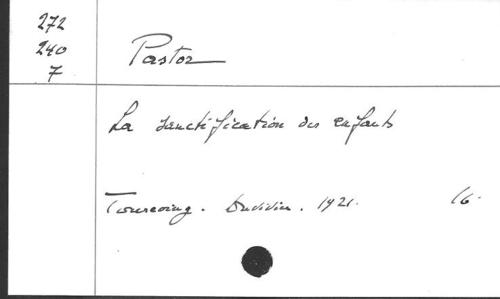 272
240
7
Pastor
La sanctification des enfants
Tourcoing. Duvivier. 1921. 16.